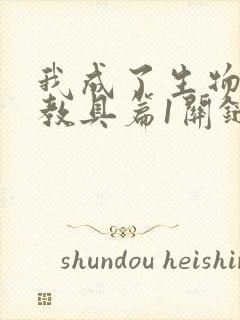 我成了生物
教具篇1開
shundou heishin